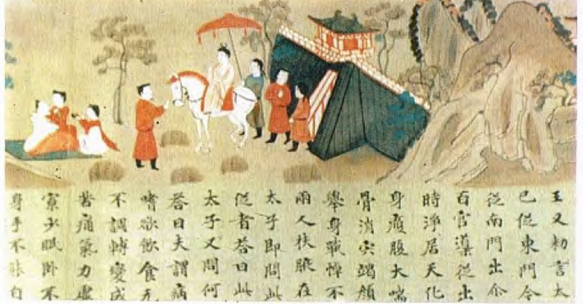 王又勑言太
已從東門令
從南門出尒
百官導從出
時淨居天化
身瘦腹大喘
骨消宍竭顔
舉身戰悼不
兩人扶腋在
太子即問此
從者荅曰此
太子又問何
荅曰夫謂病
嗜欲飲食无
不調轉變成
苦痛氣力虛
寡少眠卧不
身手不能自